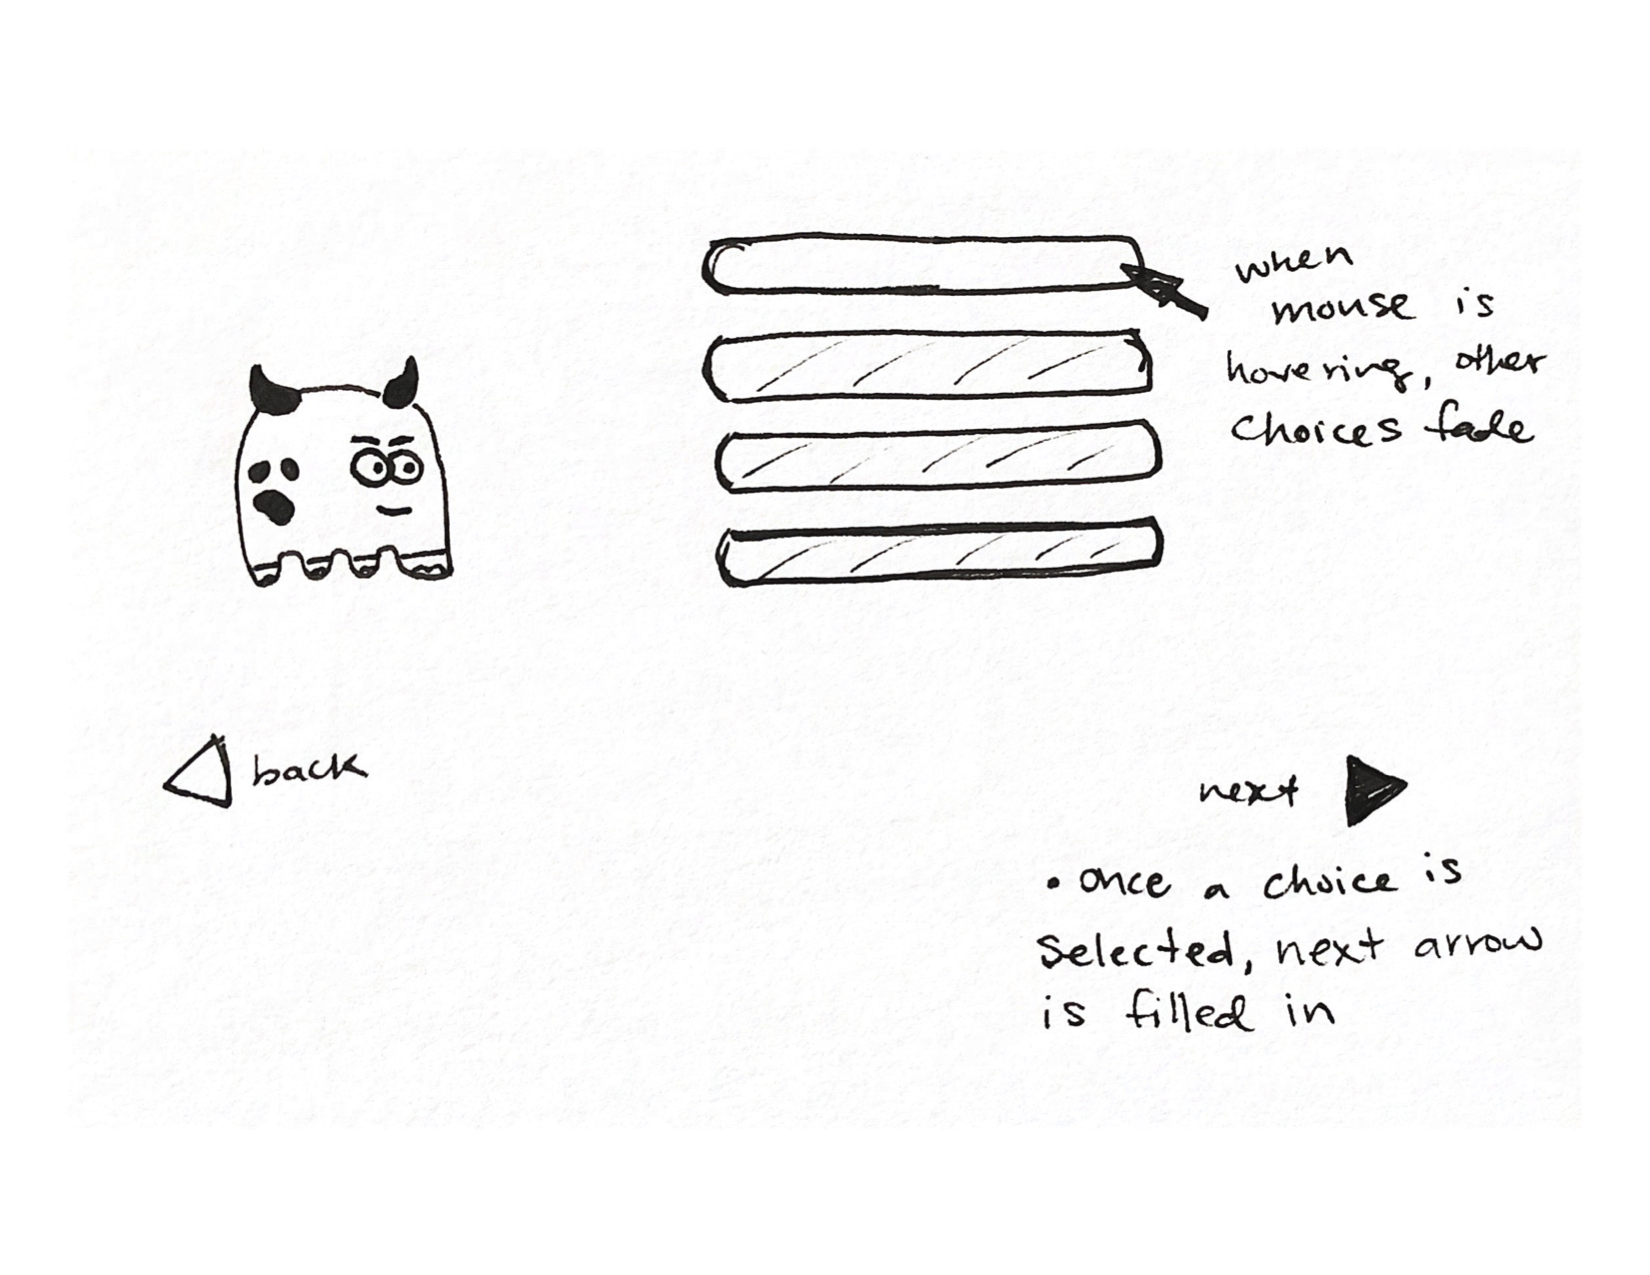 when
mouse is
hovering, other
choices fade
back
next
• once a choice is
selected, next arrow
is filled in